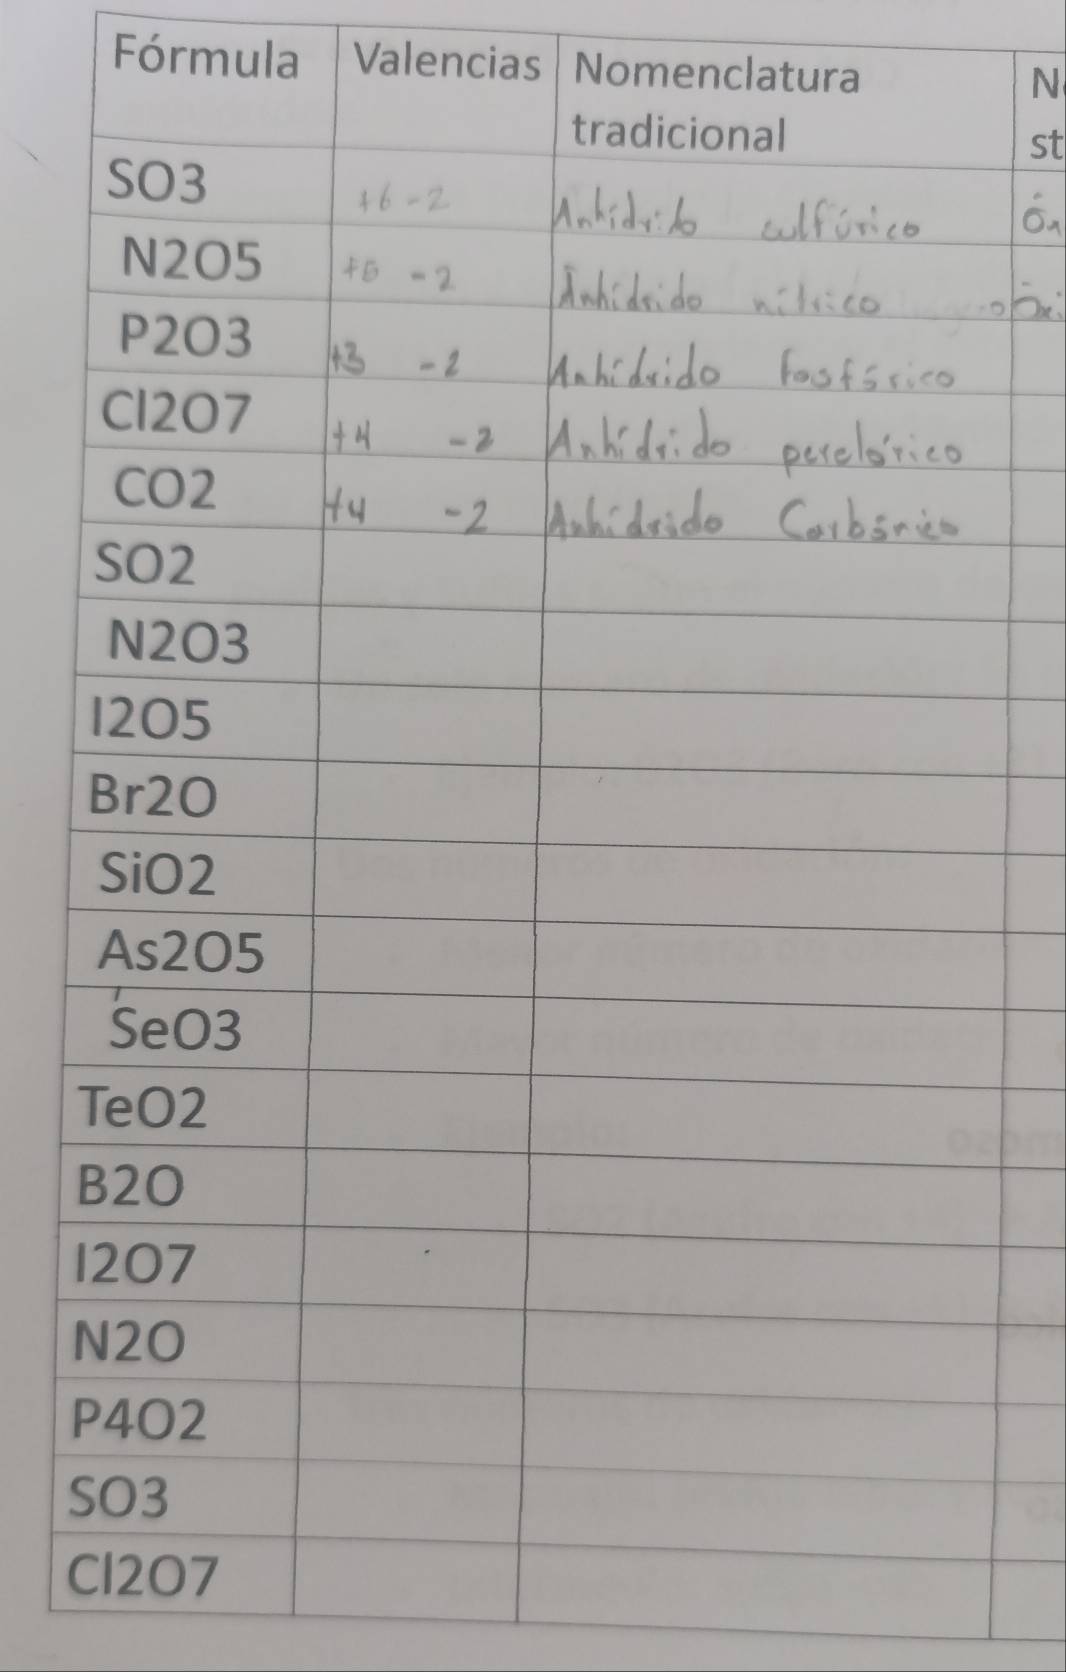 Fórmula Valencias Nomenclatura tradicional N st
SO3 +6 -2 Anhídrido sulfúrico
N2O5 +5 -2 Anhídrido nítrico
P2O3 +3 -2 Anhídrido fosfórico
Cl2O7 +4 -2 Anhídrido perclórico
CO2 +4 -2 Anhídrido Carbónico
SO2
N2O3
I2O5
Br2O
SiO2
As2O5
SeO3
TeO2
B2O
I2O7
N2O
P4O2
SO3
Cl2O7